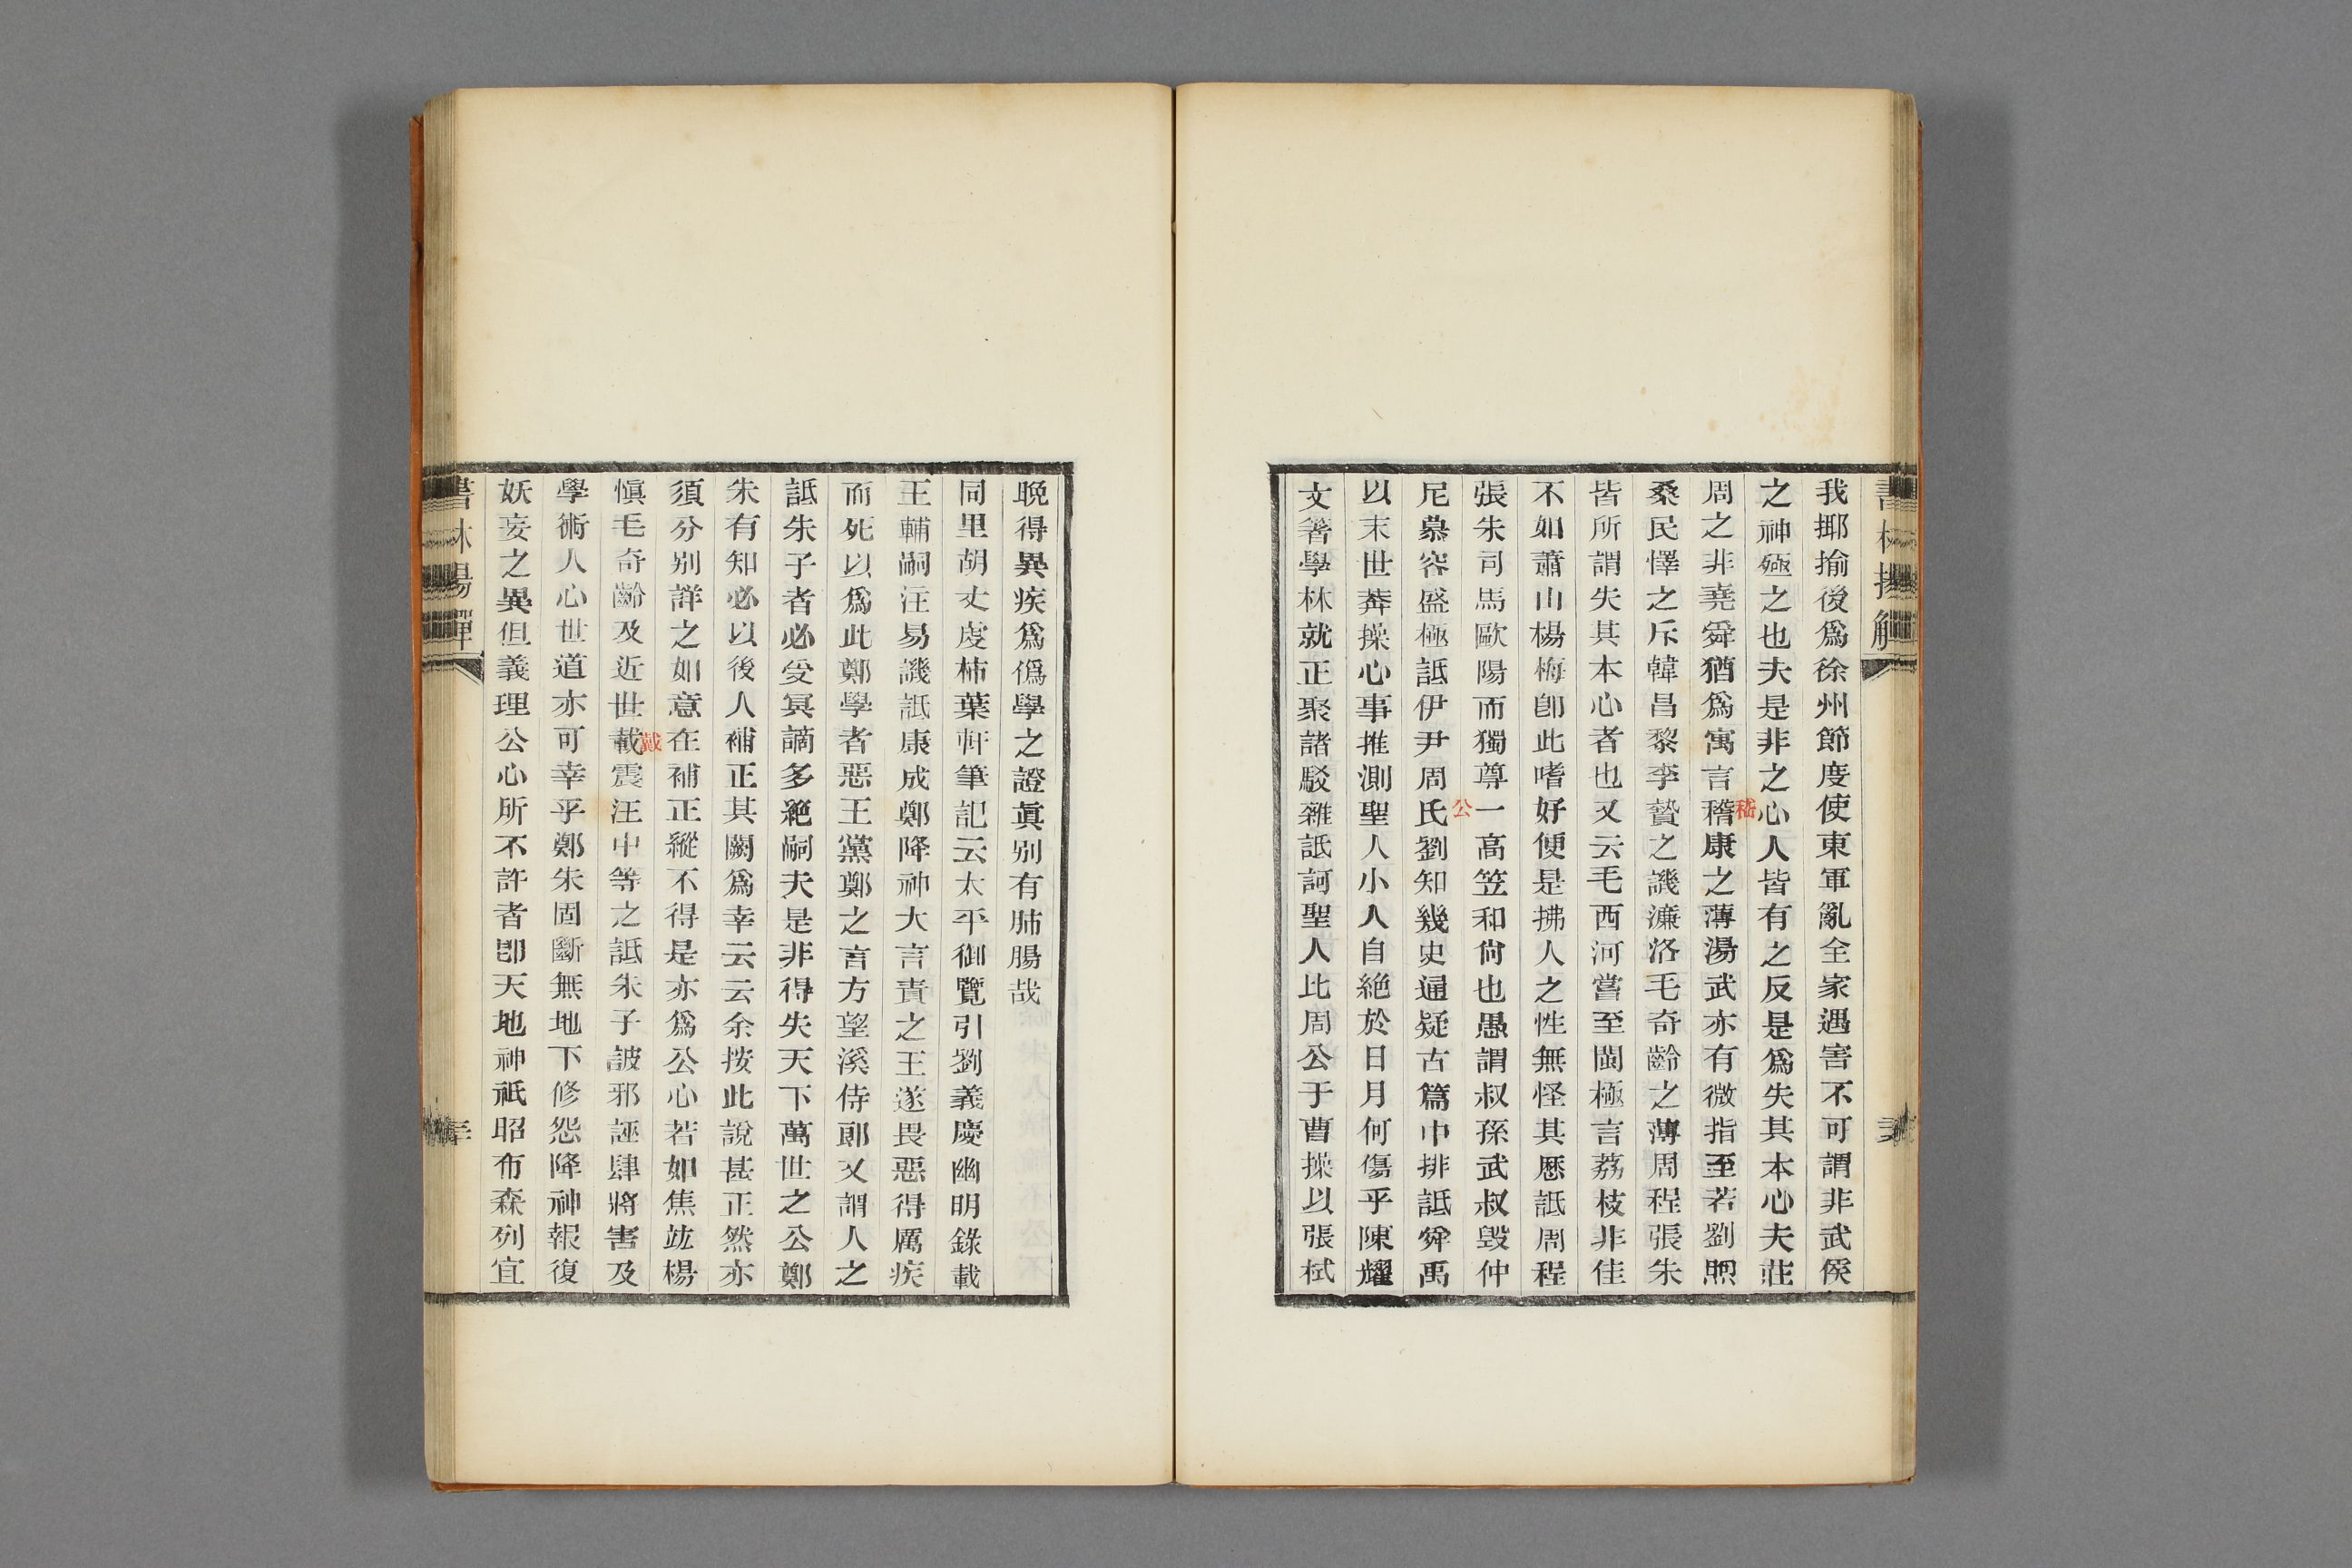 我揶揄後爲徐州節度使東軍亂全家遇害不可謂非武侯
之神殛之也夫是非之心人皆有之反是爲失其本心夫莊
周之非堯舜猶爲寓言稽康之薄湯武亦有微指至若劉煦
嵇
桑民懌之斥韓昌黎李贄之譏濂洛毛奇齡之薄周程張朱
皆所謂失其本心者也又云毛西河嘗至閩極言荔枝非佳
不如蕭山楊梅卽此嗜好便是拂人之性無怪其厯詆周程
張朱司馬歐陽而獨尊一高笠和尙也愚謂叔孫武叔毀仲
公
尼慕容盛極詆伊尹周氏劉知幾史通疑古篇中排詆舜禹
以末世莽操心事推測聖人小人自絶於日月何傷乎陳耀
文著學林就正聚諸駁雜詆訶聖人比周公于曹操以張栻
書林揚觶
晚得異疾爲僞學之證眞别有肺腸哉
同里胡丈虔柿葉軒筆記云太平御覽引劉義慶幽明錄載
王輔嗣注易譏詆康成鄭降神大言責之王遂畏惡得厲疾
而死以爲此鄭學者惡王黨鄭之言方望溪侍郎又謂人之
詆朱子者必受冥謫多絶嗣夫是非得失天下萬世之公鄭
朱有知必以後人補正其闕爲幸云云余按此說甚正然亦
須分别詳之如意在補正縱不得是亦爲公心若如焦竑楊
慎毛奇齡及近世載震汪中等之詆朱子詖邪誣肆將害及
戴
學術人心世道亦可幸乎鄭朱固斷無地下修怨降神報復
妖妄之異但義理公心所不許者卽天地神祇昭布森列宜
書林揚觶